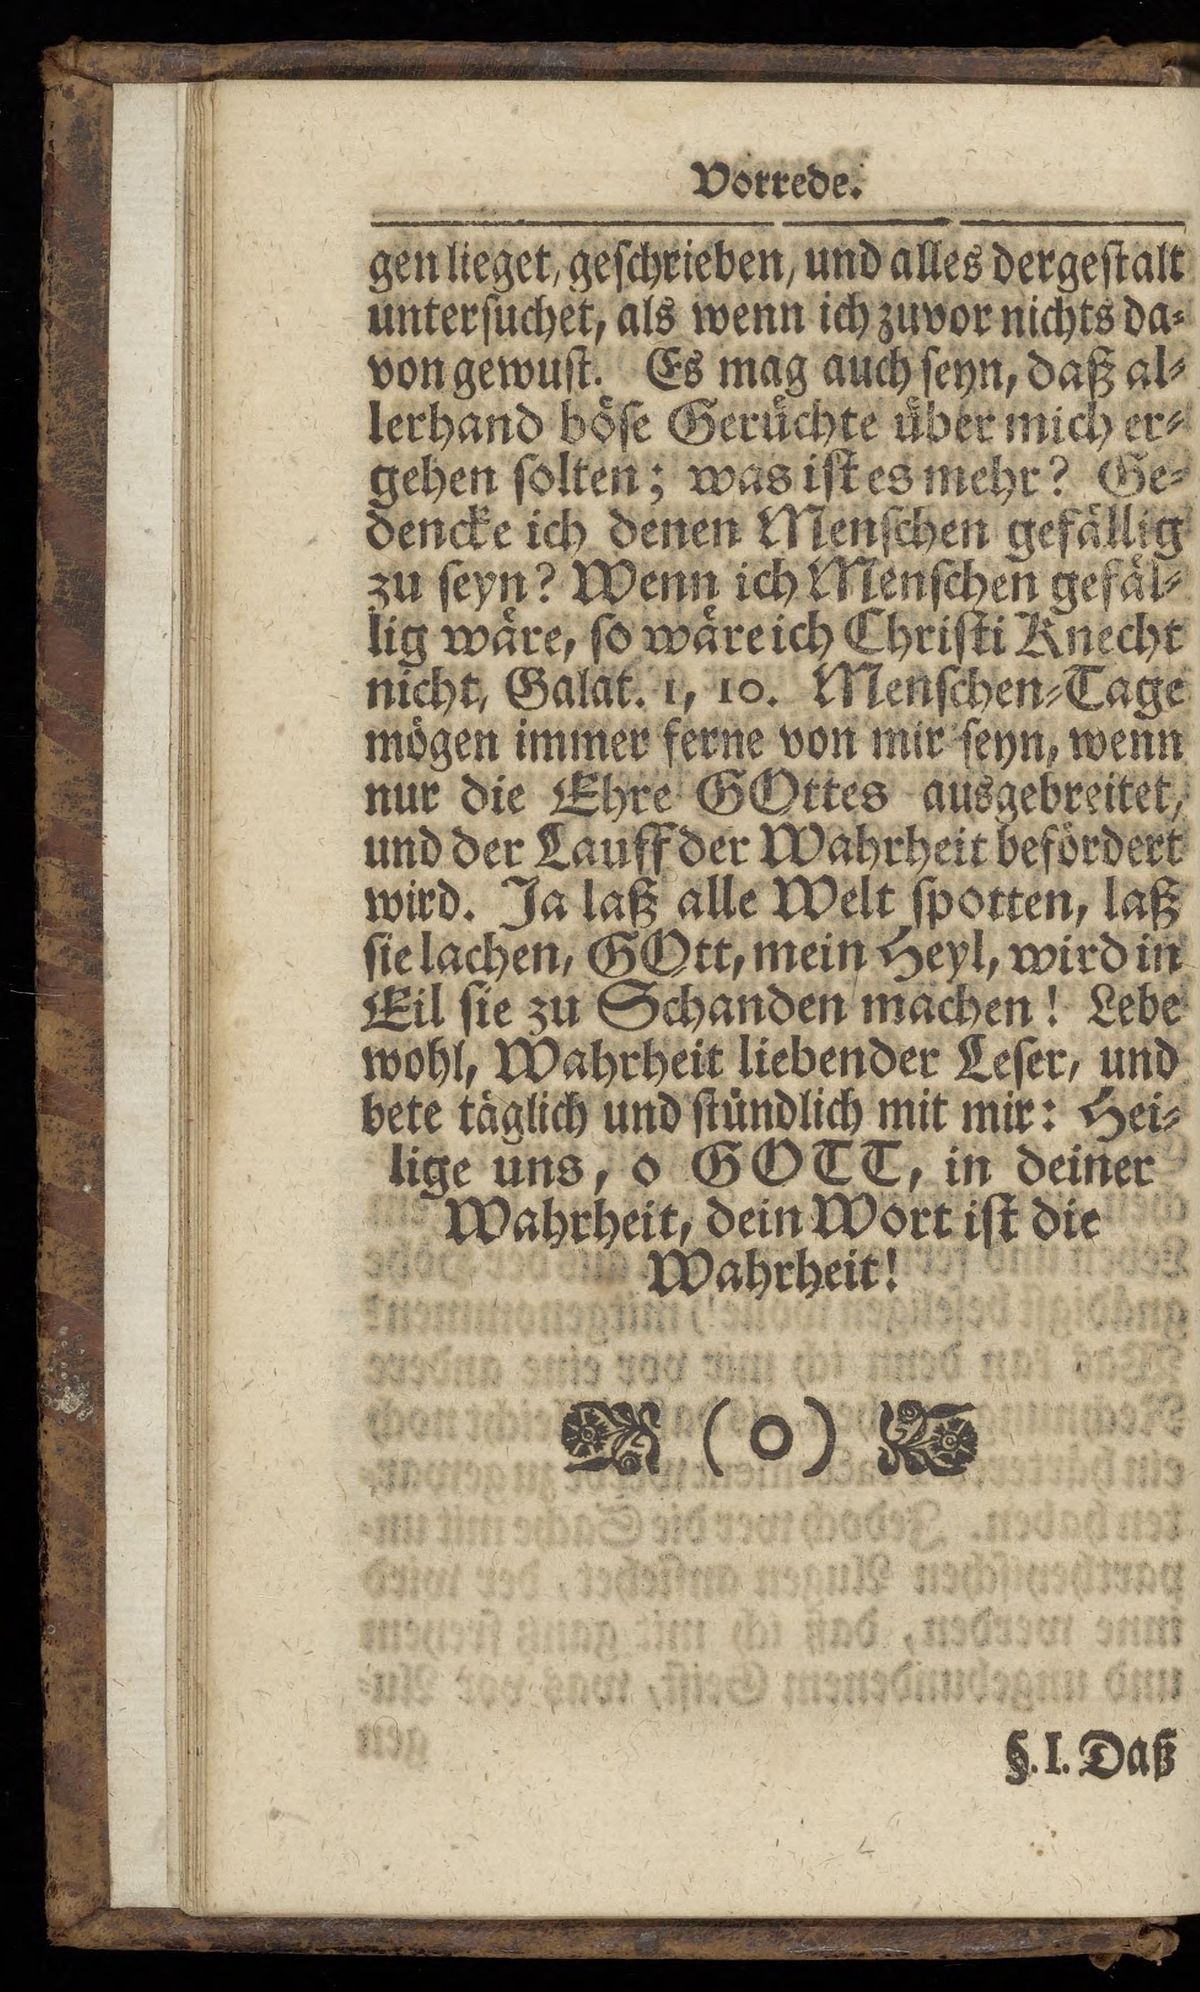 Vorrede.
gen lieget, geſchrieben, und alles dergeſtalt
unterſuchet, als wenn ich zuvor nichts da⸗
von gewuſt. Es mag auch ſeyn, daß al⸗
lerhand böſe Gerüchte über mich er⸗
gehen ſolten; was iſt es mehr? Ge⸗
dencke ich denen Menſchen gefällig
zu ſeyn? Wenn ich Menſchen gefäl⸗
lig wäre, ſo wäre ich Chriſti Knecht
nicht, Galat. 1, 10. Menſchen⸗Tage
mögen immer ferne von mir ſeyn, wenn
nur die Ehre GOttes ausgebreitet,
und der Lauff der Wahrheit befördert
wird. Ja laß alle Welt ſpotten, laß
ſie lachen, GOtt, mein Heyl, wird in
Eil ſie zu Schanden machen! Lebe
wohl, Wahrheit liebender Leſer, und
bete täglich und ſtündlich mit mir: Hei⸗
lige uns, o GOTT, in deiner
Wahrheit, dein Wort iſt die
Wahrheit!
(o)
§. I. Daß